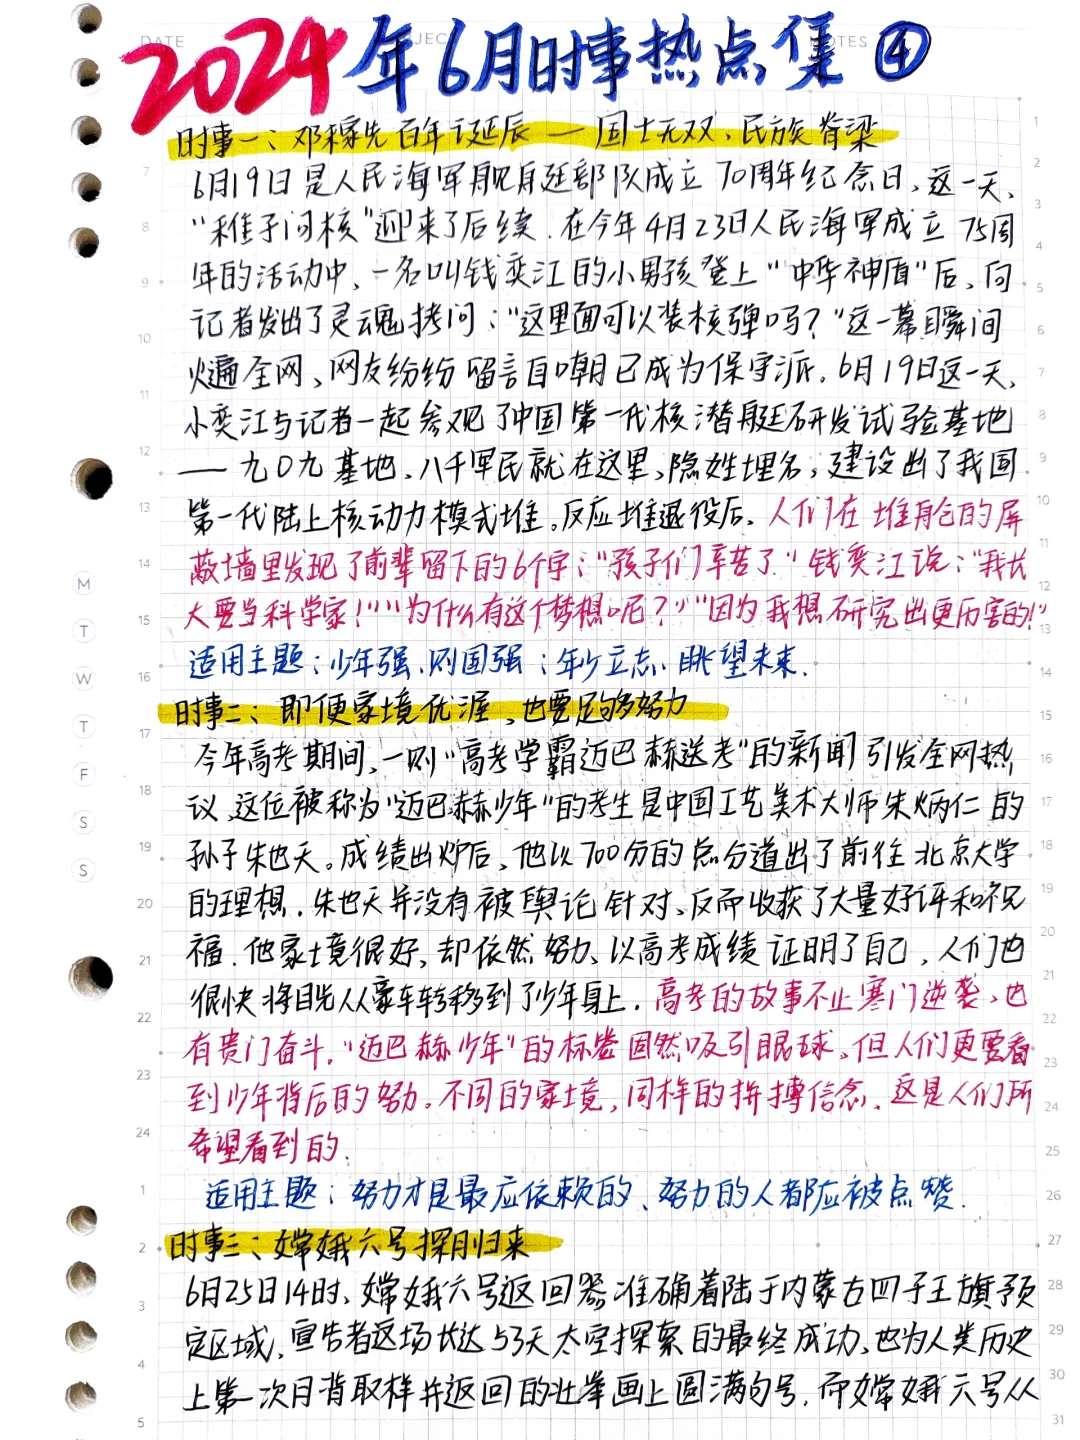 DATE
NOTES
2024年6月时事热点集④
时事一：邓稼先百年诞辰—国士无双、民族脊梁
6月19日是人民海军舰艇部队成立70周年纪念日，这一天，
“稚子问核”迎来了后续．在今年4月23日人民海军成立75周
年的活动中，一名叫钱奕江的小男孩登上“中华神盾”后，向
记者发出了灵魂拷问：“这里面可以装核弹吗？”这一幕瞬间
火遍全网、网友纷纷留言自嘲已成为保守派。6月19日这一天，
小奕江与记者一起参观了中国第一代核潜艇研发试验基地
——九〇九基地，八千军民就在这里，隐姓埋名，建设出了我国
第一代陆上核动力模式堆。反应堆退役后，人们在堆舱的屏
蔽墙里发现了前辈留下的6个字：“孩子们辛苦了”钱奕江说：“我长
大要当科学家！”“为什么有这个梦想呢？”“因为我想研究出更厉害的！”
适用主题：少年强，则国强；年少立志，眺望未来．
时事二：即便家境优渥、也要足够努力
今年高考期间，一则“高考学霸迈巴赫送考”的新闻引发全网热
议，这位被称为“迈巴赫少年”的考生是中国工艺美术大师朱炳仁的
孙子朱也天。成绩出炉后，他以700分的总分道出了前往北京大学
的理想．朱也天并没有被舆论针对，反而收获了大量好评和祝
福．他家境很好，却依然努力，以高考成绩证明了自己，人们也
很快将目光从豪车转移到了少年身上．高考的故事不止寒门逆袭，也
有贵门奋斗．“迈巴赫少年”的标签固然吸引眼球，但人们更要看
到少年背后的努力。不同的家境，同样的拼搏信念，这是人们所
希望看到的．
适用主题：努力才是最应依赖的、努力的人都应被点赞．
时事三：嫦娥六号探月归来
6月25日14时，嫦娥六号返回器准确着陆于内蒙古四子王旗预
定区域，宣告者这场长达53天太空探索的最终成功，也为人类历史
上第一次月背取样并返回的壮举画上圆满句号，而嫦娥六号从
M
T
W
T
F
S
S